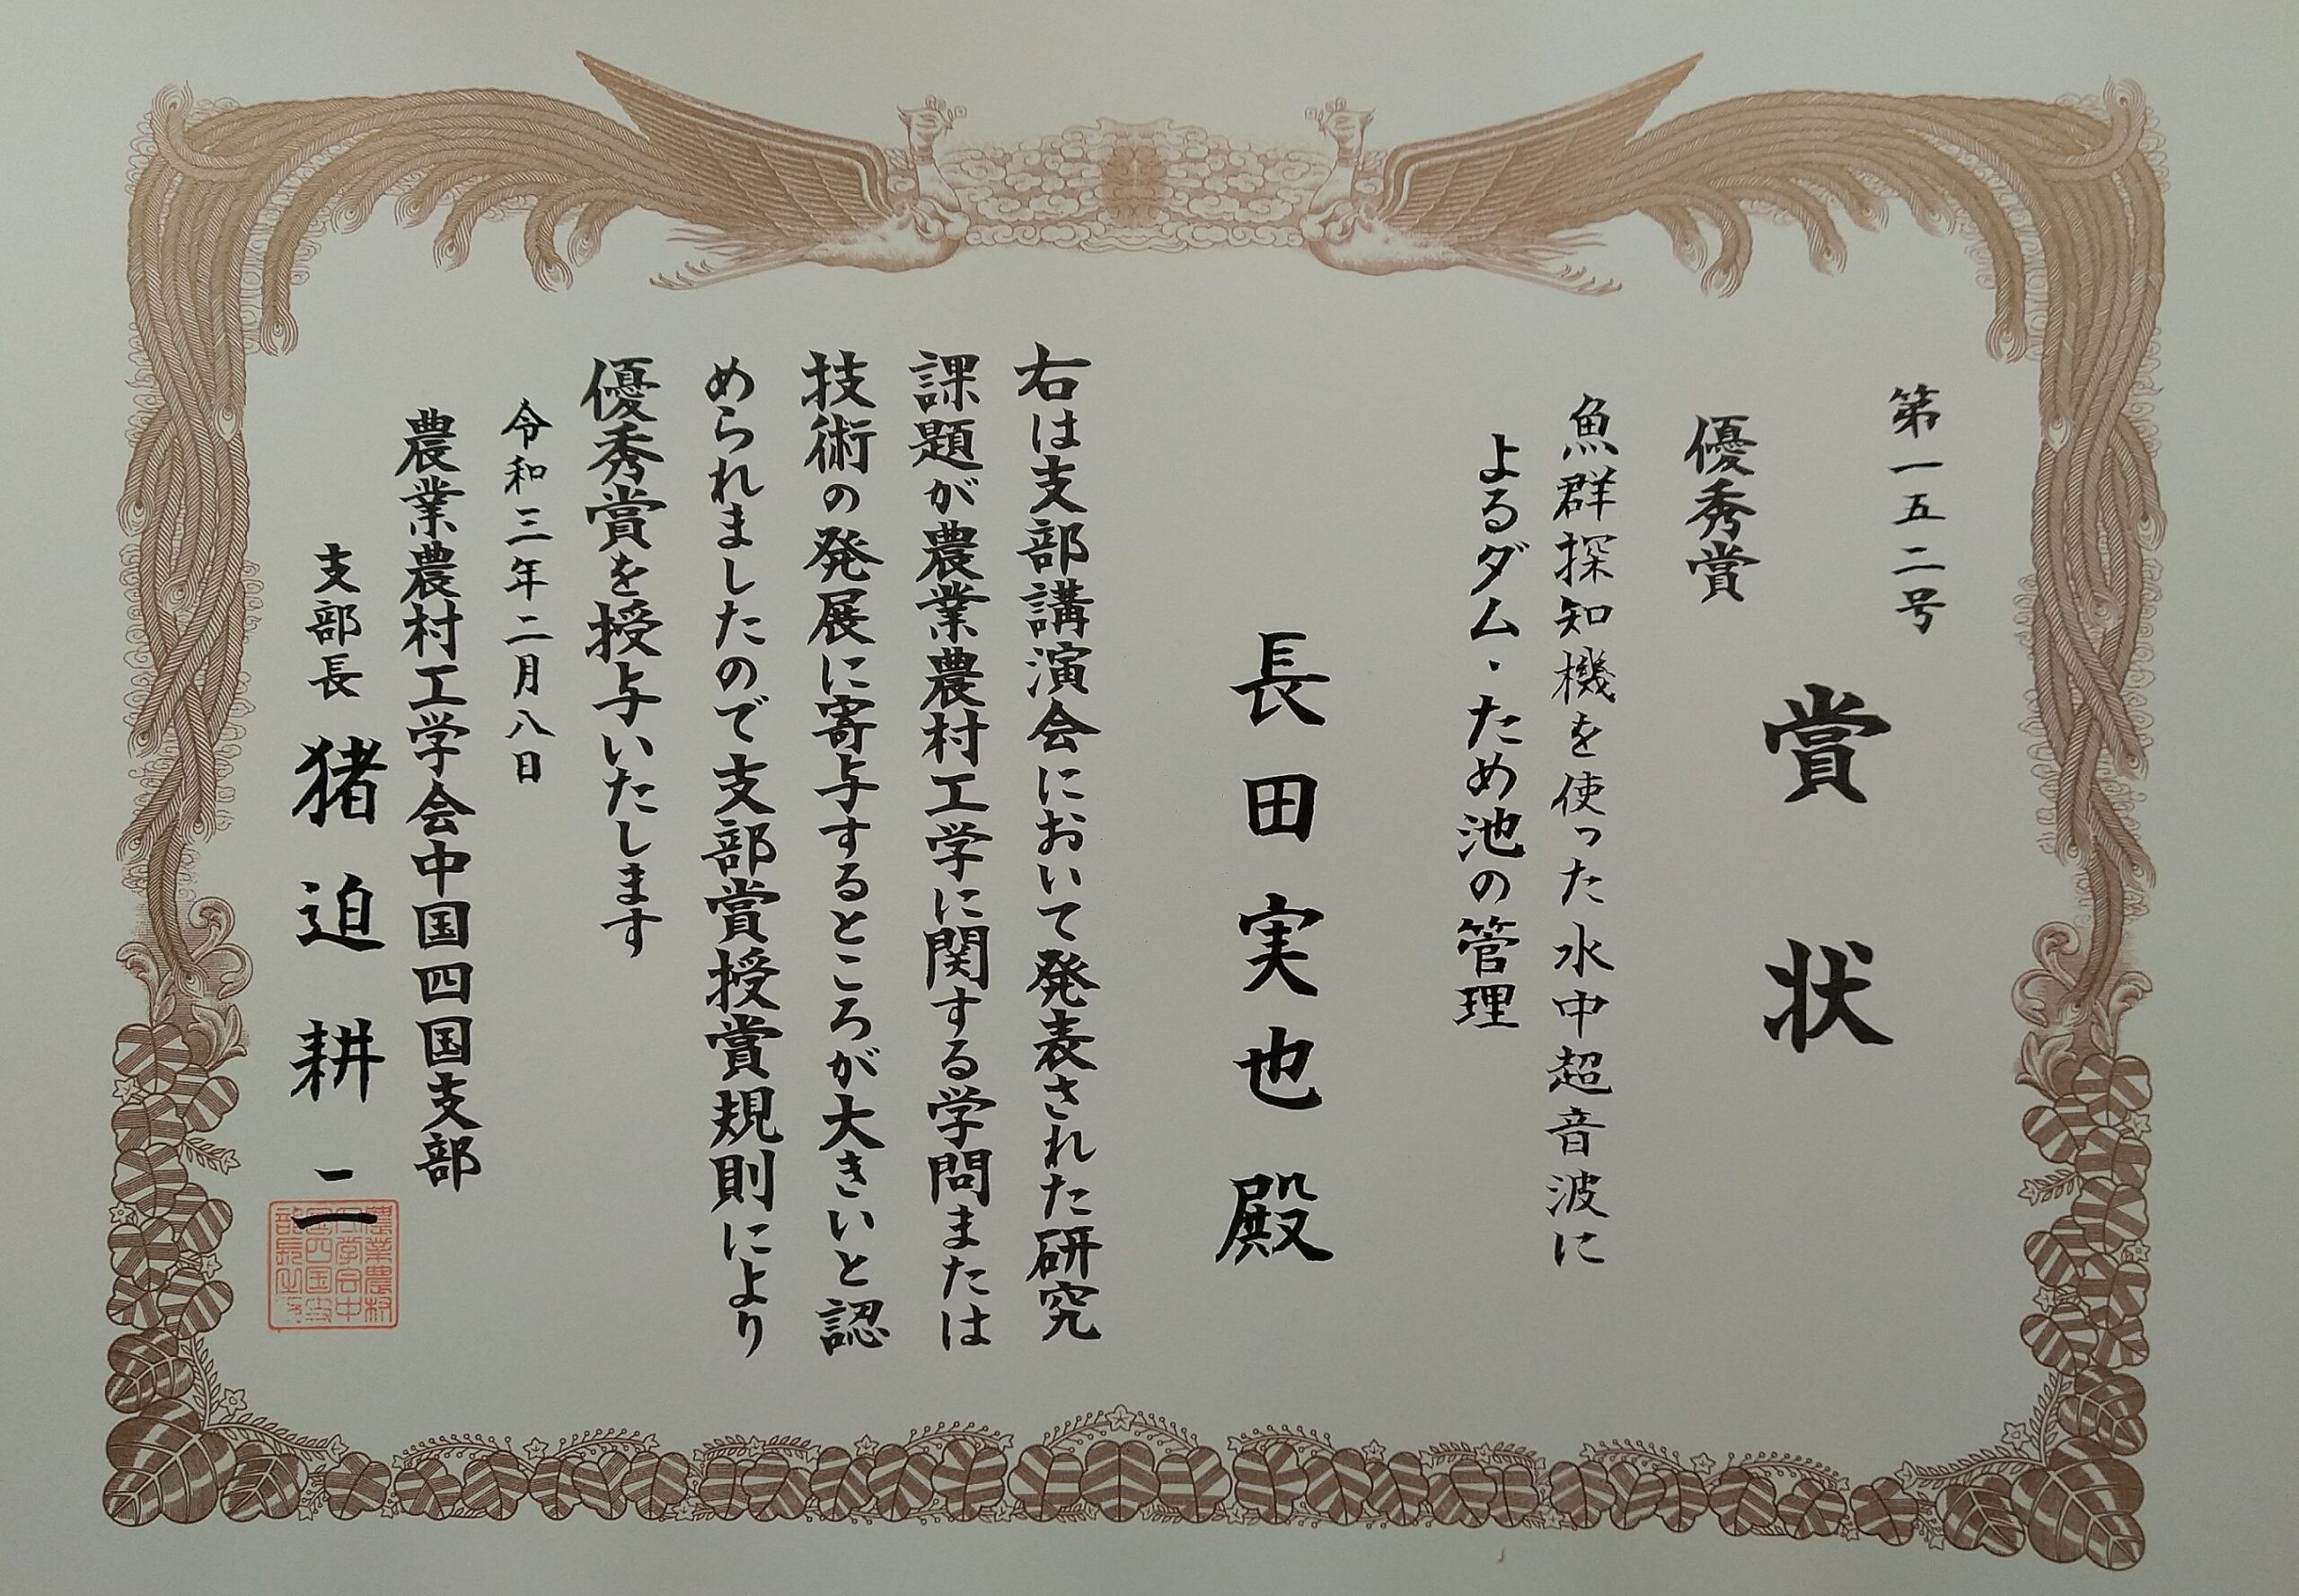 第一五二号
賞状
優秀賞
魚群探知機を使った水中超音波に
よるダム・ため池の管理
長田実也殿
右は支部講演会において発表された研究
課題が農業農村工学に関する学問または
技術の発展に寄与するところが大きいと認
められましたので支部賞授賞規則により
優秀賞を授与いたします
令和三年二月八日
農業農村工学会中国四国支部
支部長 猪迫耕二
農業農村
工学会中
国四国支
部長之